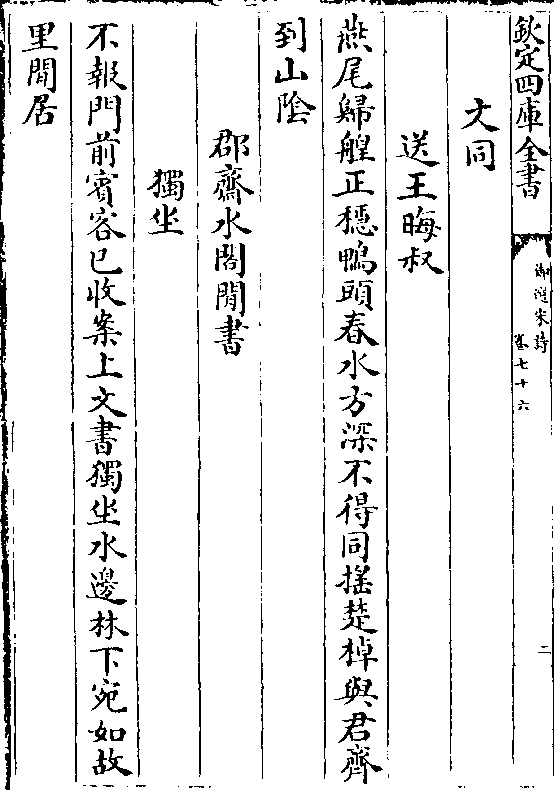 欽定四庫全書
御選宋詩
卷七十六
二
文同
送王晦叔
燕尾歸艎正穩鴨頭春水方深不得同搖楚棹與君齊
到山陰
郡齋水閣閒書
獨坐
不報門前賓客已收案上文書獨坐水邊林下宛如故
里閒居